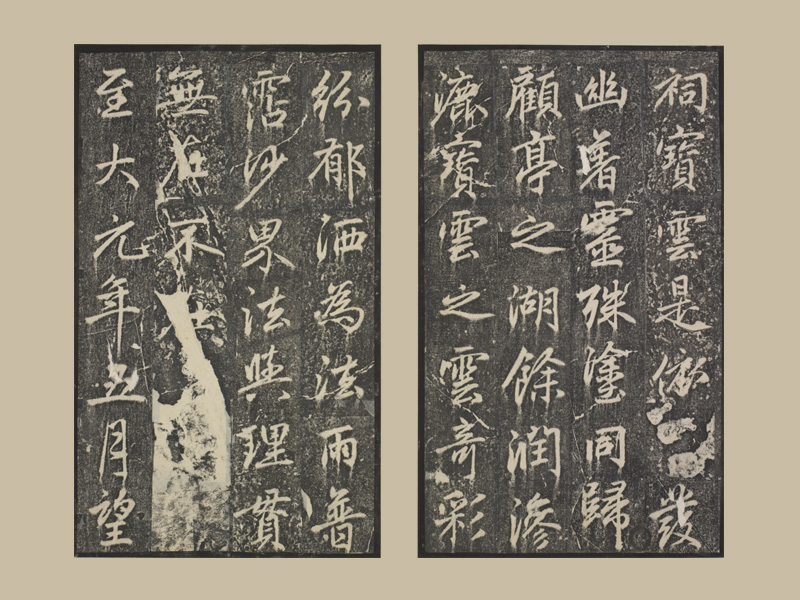 祠寶雲是依發
幽署靈殊塗同歸
顧亭之湖餘潤滲
漉寶雲之雲奇彩
紛郁洒為法雨普
霑沙界法與理貫
無在不在
至大元年五月望